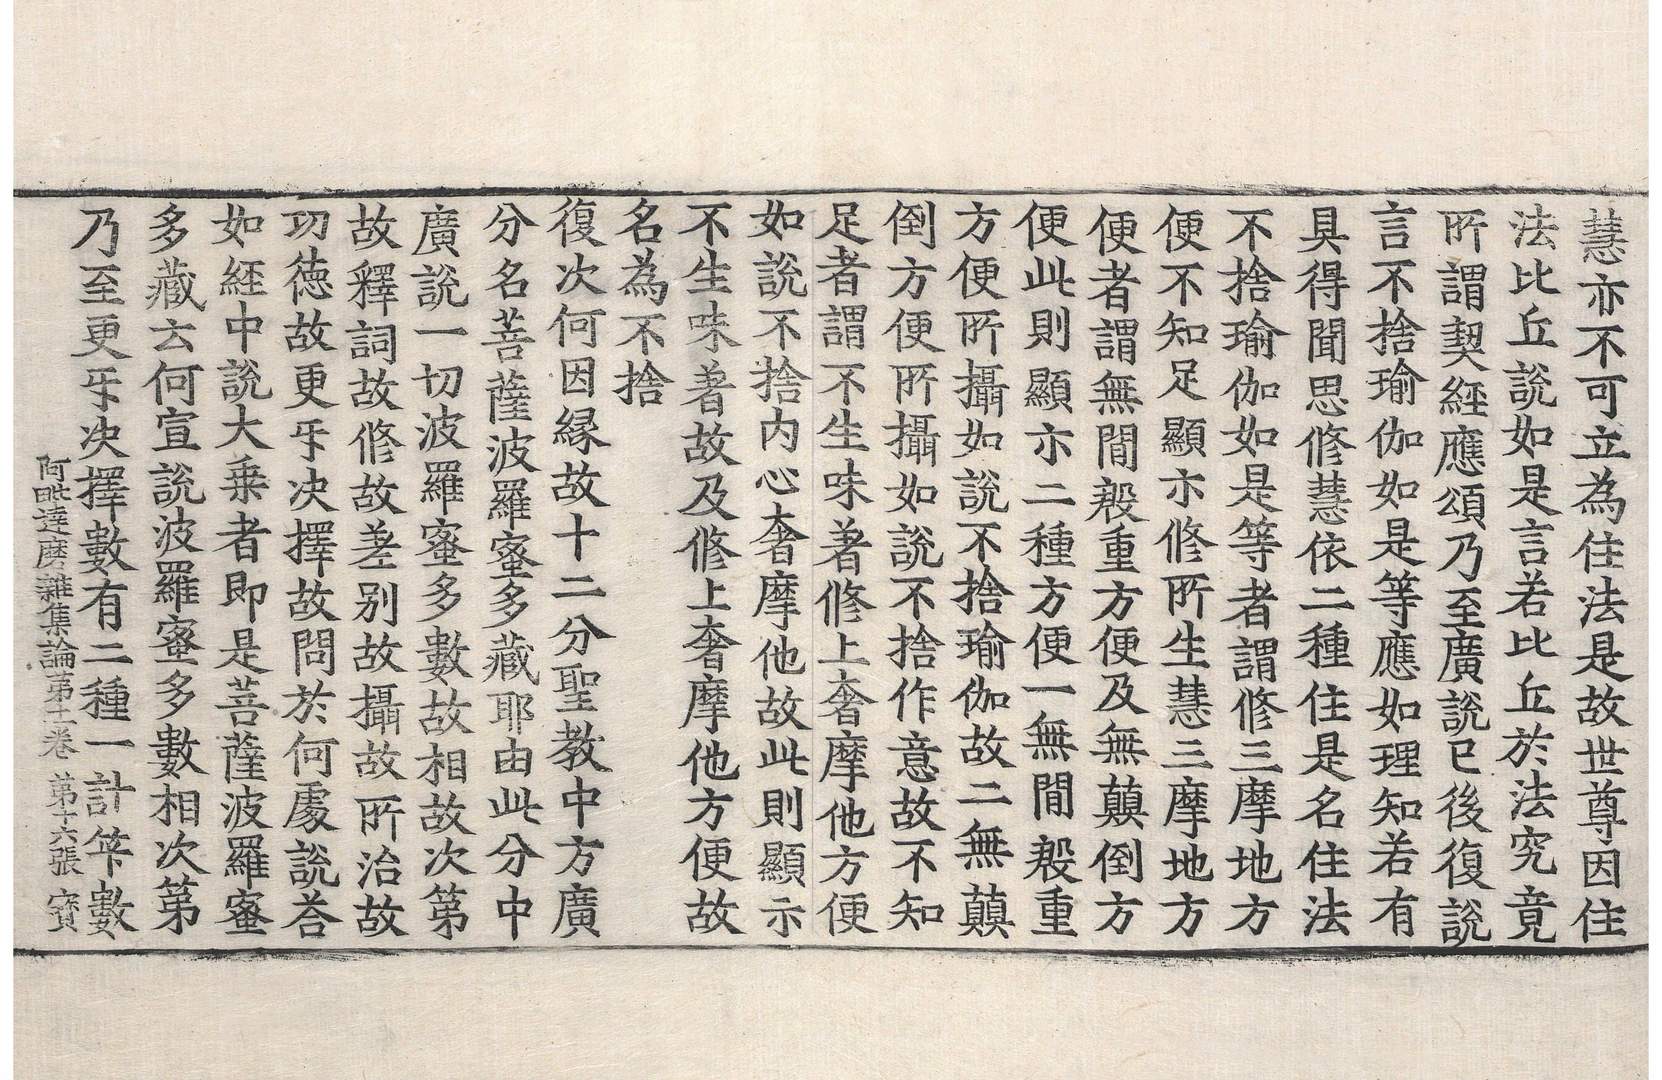 慧亦不可立為住法是故世尊因住
法比丘說如是言若比丘於法究竟
所謂契經應頌乃至廣說已後復說
言不捨瑜伽如是等應如理知若有
具得聞思修慧依二種住是名住法
不捨瑜伽如是等者謂修三摩地方
便不知足顯示修所生慧三摩地方
便者謂無間殷重方便及無顛倒方
便此則顯示二種方便一無間殷重
方便所攝如說不捨瑜伽故二無顛
倒方便所攝如說不捨作意故不知
足者謂不生味著修上奢摩他方便
如說不捨內心奢摩他故此則顯示
不生味著故及修上奢摩他方便故
名為不捨
復次何因緣故十二分聖教中方廣
分名菩薩波羅蜜多藏耶由此分中
廣說一切波羅蜜多數故相故次第
故釋詞故修故差別故攝故所治故
功德故更互決擇故問於何處說答
如經中說大乗者即是菩薩波羅蜜
多藏云何宣說波羅蜜多數相次第
乃至更互決擇數有二種一計筭數
阿毗達磨雜集論第十一卷 第十六張 寶